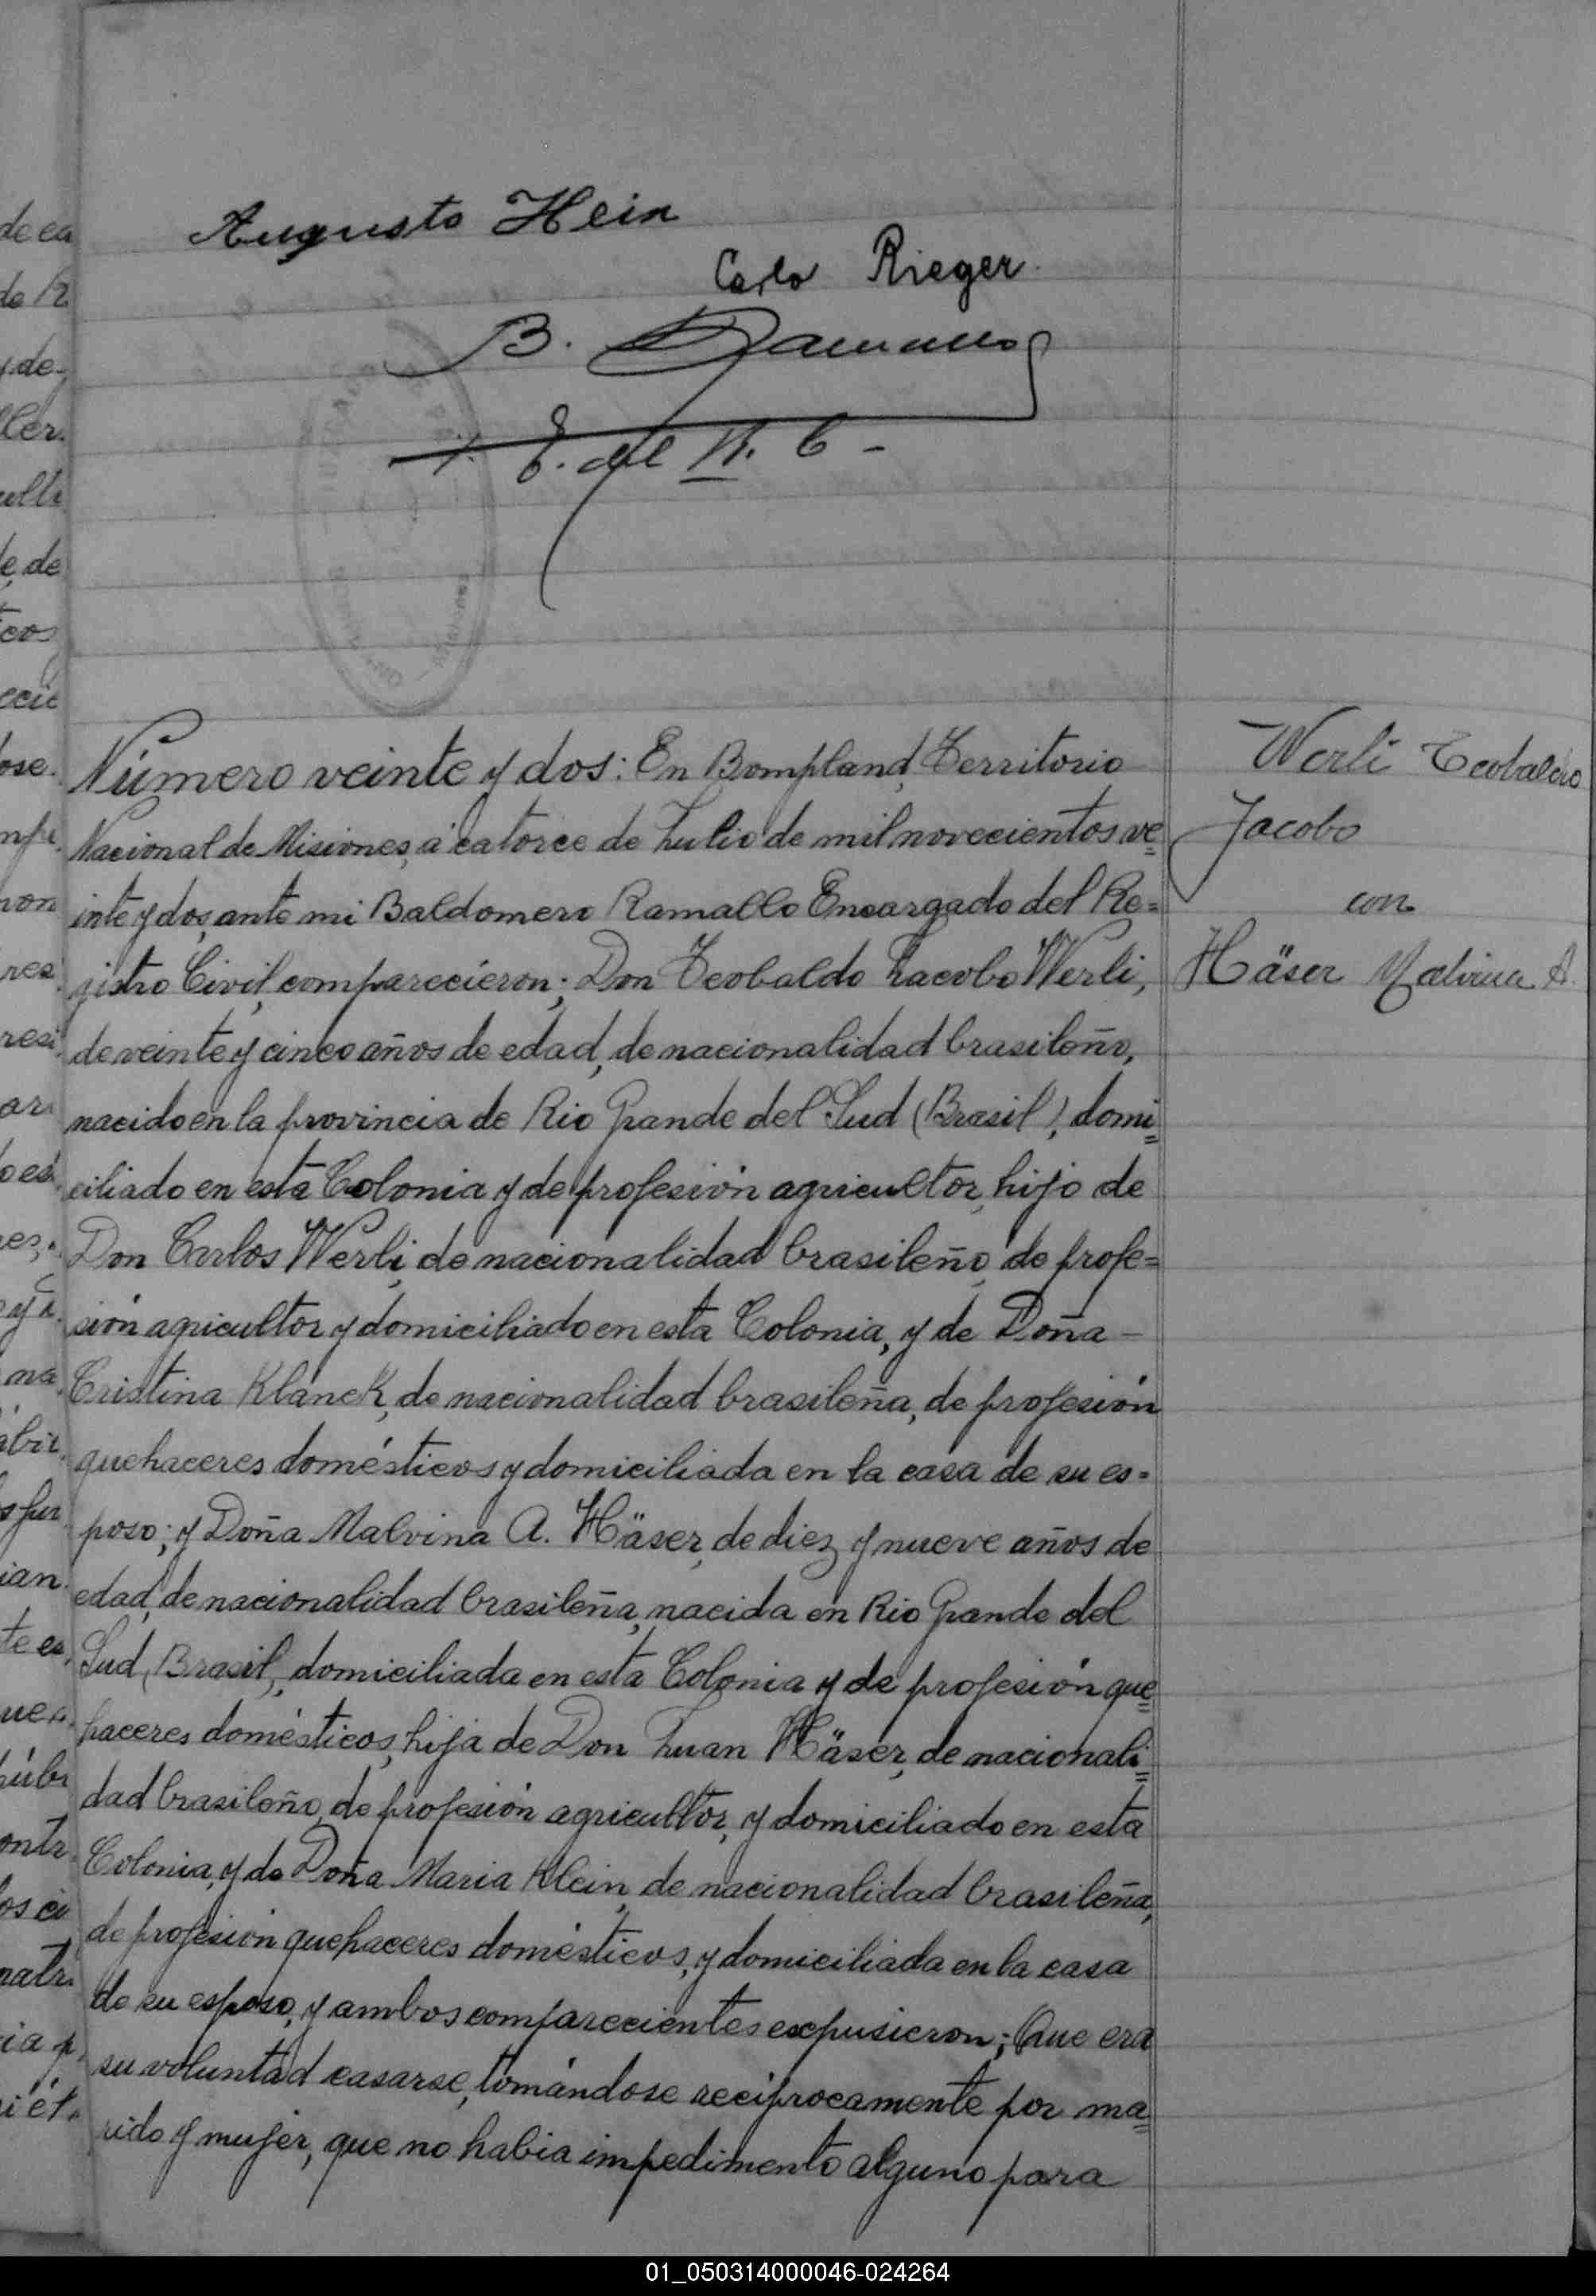 Augusto Hein
Carlo Rieger.
B. Ramallo
E. del R. C -
Número veinte y dos: En Bompland, Territorio
Nacional de Misiones, á catorce de Julio de mil novecientos ve=
inte y dos, ante mi Baldomero Ramallo Encargado del Re=
gistro Civil, comparecieron; Don Teobaldo Jacobo Werli,
de veinte y cinco años de edad, de nacionalidad brasileño,
nacido en la provincia de Rio Grande del Sud (Brasil), domi=
ciliado en esta Colonia y de profesión agricultor, hijo de
Don Carlos Werli, de nacionalidad brasileño, de profe=
sión agricultor y domiciliado en esta Colonia, y de Doña -
Cristina Klanck, de nacionalidad brasileña, de profesión
quehaceres domésticos y domiciliada en la casa de su es=
poso; y Doña Malvina A. Häser, de diez y nueve años de
edad, de nacionalidad brasileña, nacida en Rio Grande del
Sud, (Brasil), domiciliada en esta Colonia y de profesión que=
haceres domésticos, hija de Don Juan Häser, de nacionali=
dad brasileño, de profesión agricultor, y domiciliado en esta
Colonia, y de Doña Maria Klein, de nacionalidad brasileña,
de profesión quehaceres domésticos, y domiciliada en la casa
de su esposo, y ambos comparecientes expusieron; Que era
su voluntad casarse, tomándose recíprocamente por ma=
rido y mujer, que no habia impedimento alguno para
Werli Teobaldo
Jacobo
con
Häser Malvina A.
01_050314000046-024264